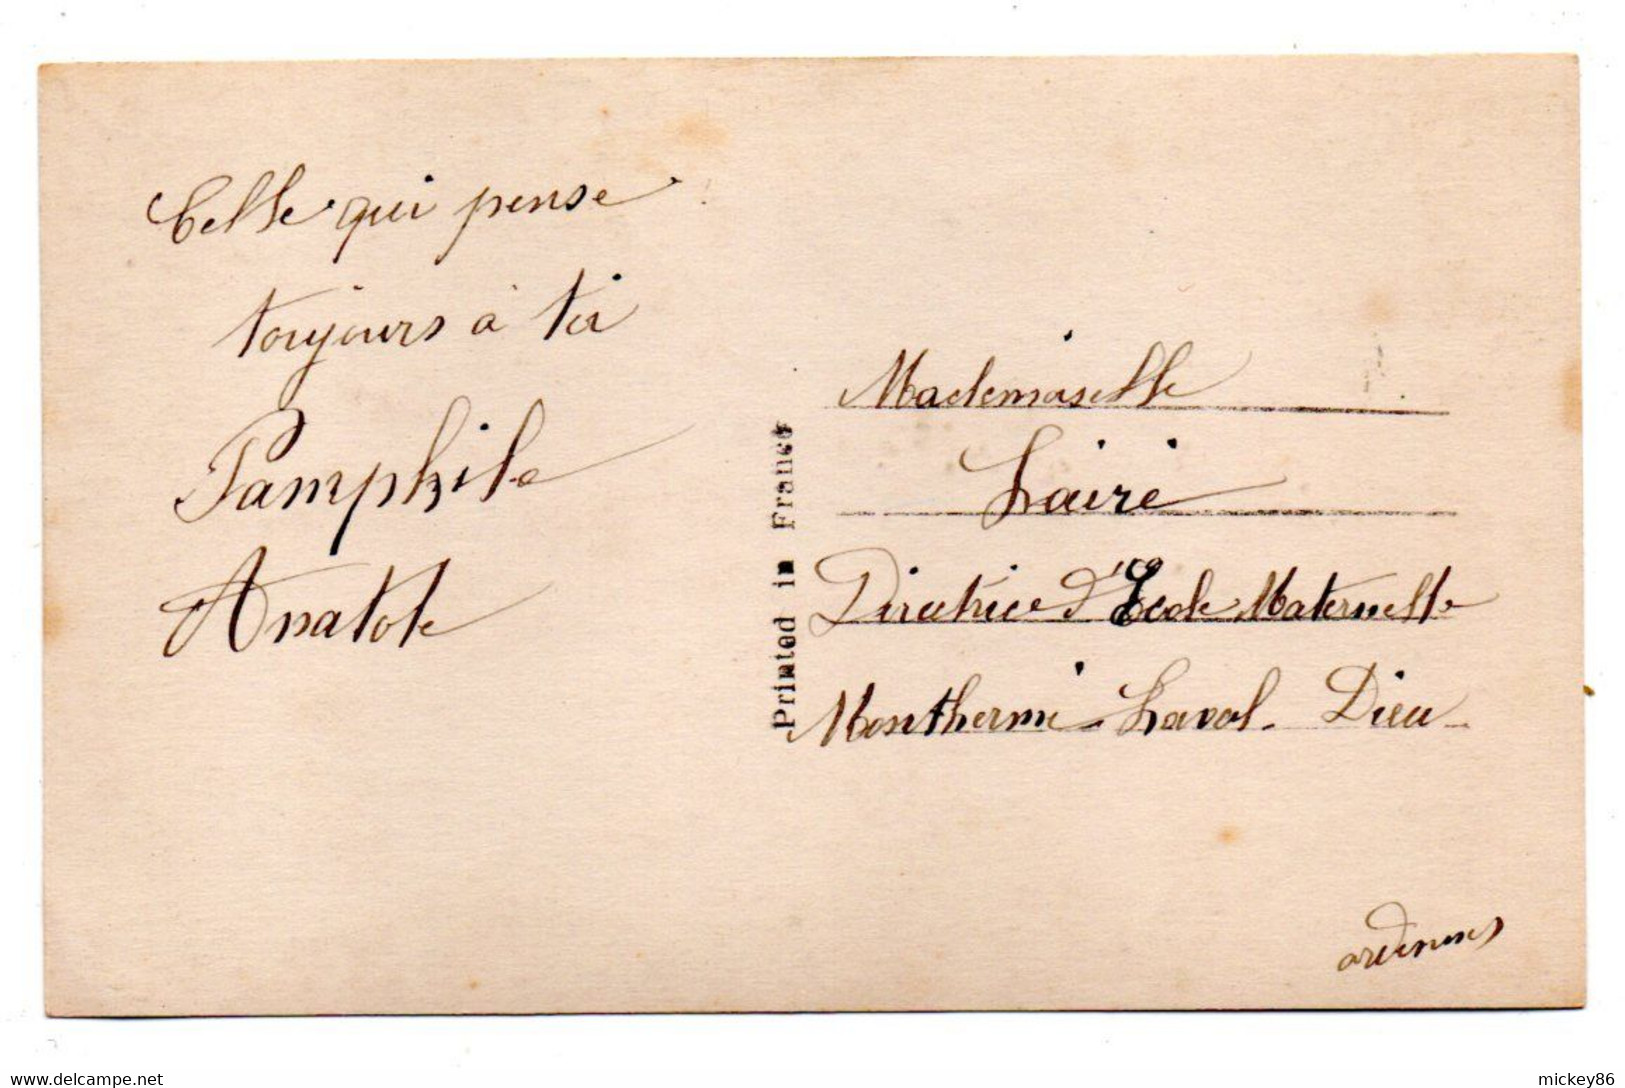 Celle qui pense
toujours à toi
Pamphile
Anatole
Printed in France
Mademoiselle
Lairé
Directrice d'Ecole Maternelle
Monthermé - Laval. Dieu
ardennes
www.delcampe.net
mickey86